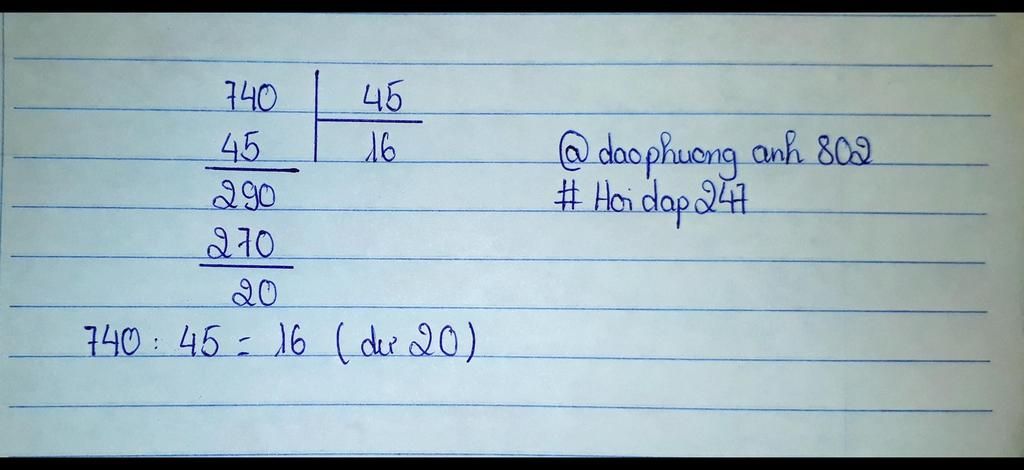 740 | 45
45 | 16
290
270
20
740 : 45 = 16 (dư 20)
@ daophuong anh 802
# Hoi dap 247